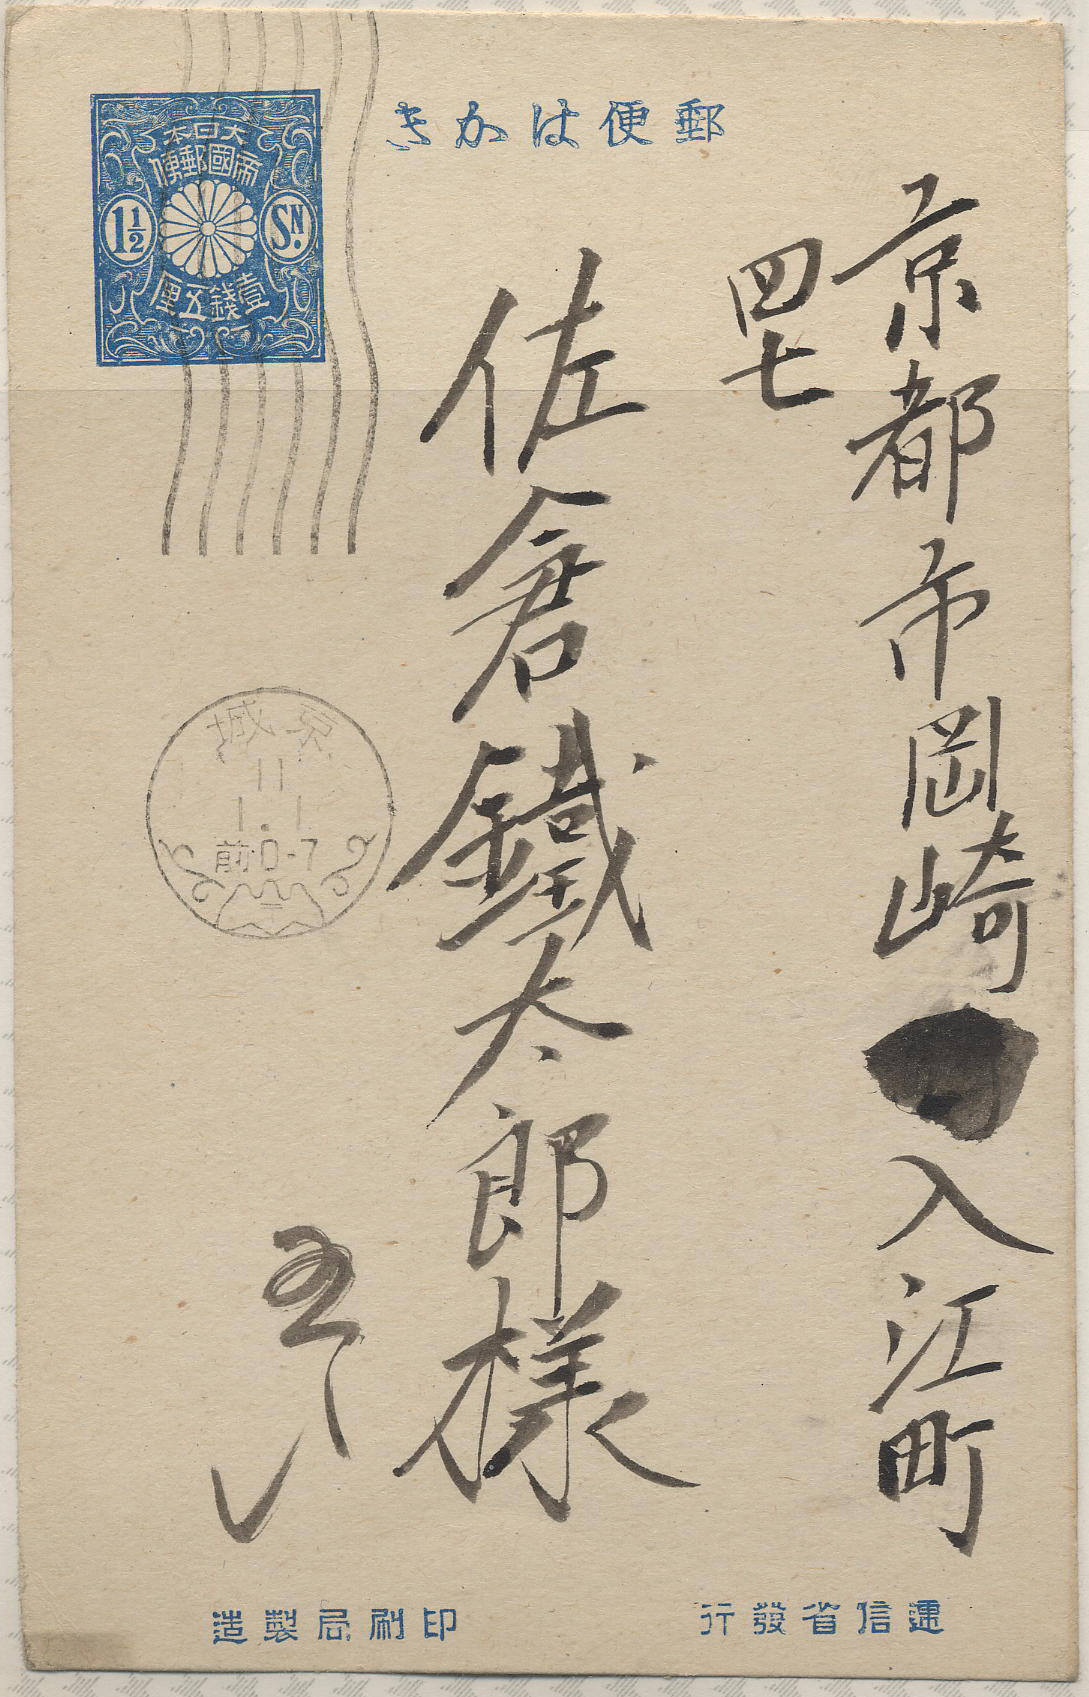 郵便はかき
大日本
帝國郵便
1½ SN.
壹錢五厘
京都市岡崎入江町
四七
佐倉鐵太郎様
京城
11
1.1
前0-7
遞信省發行
印刷局製造